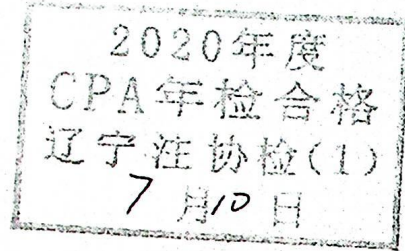 2020年度
CPA年检合格
辽宁注协检(1)
7月10日